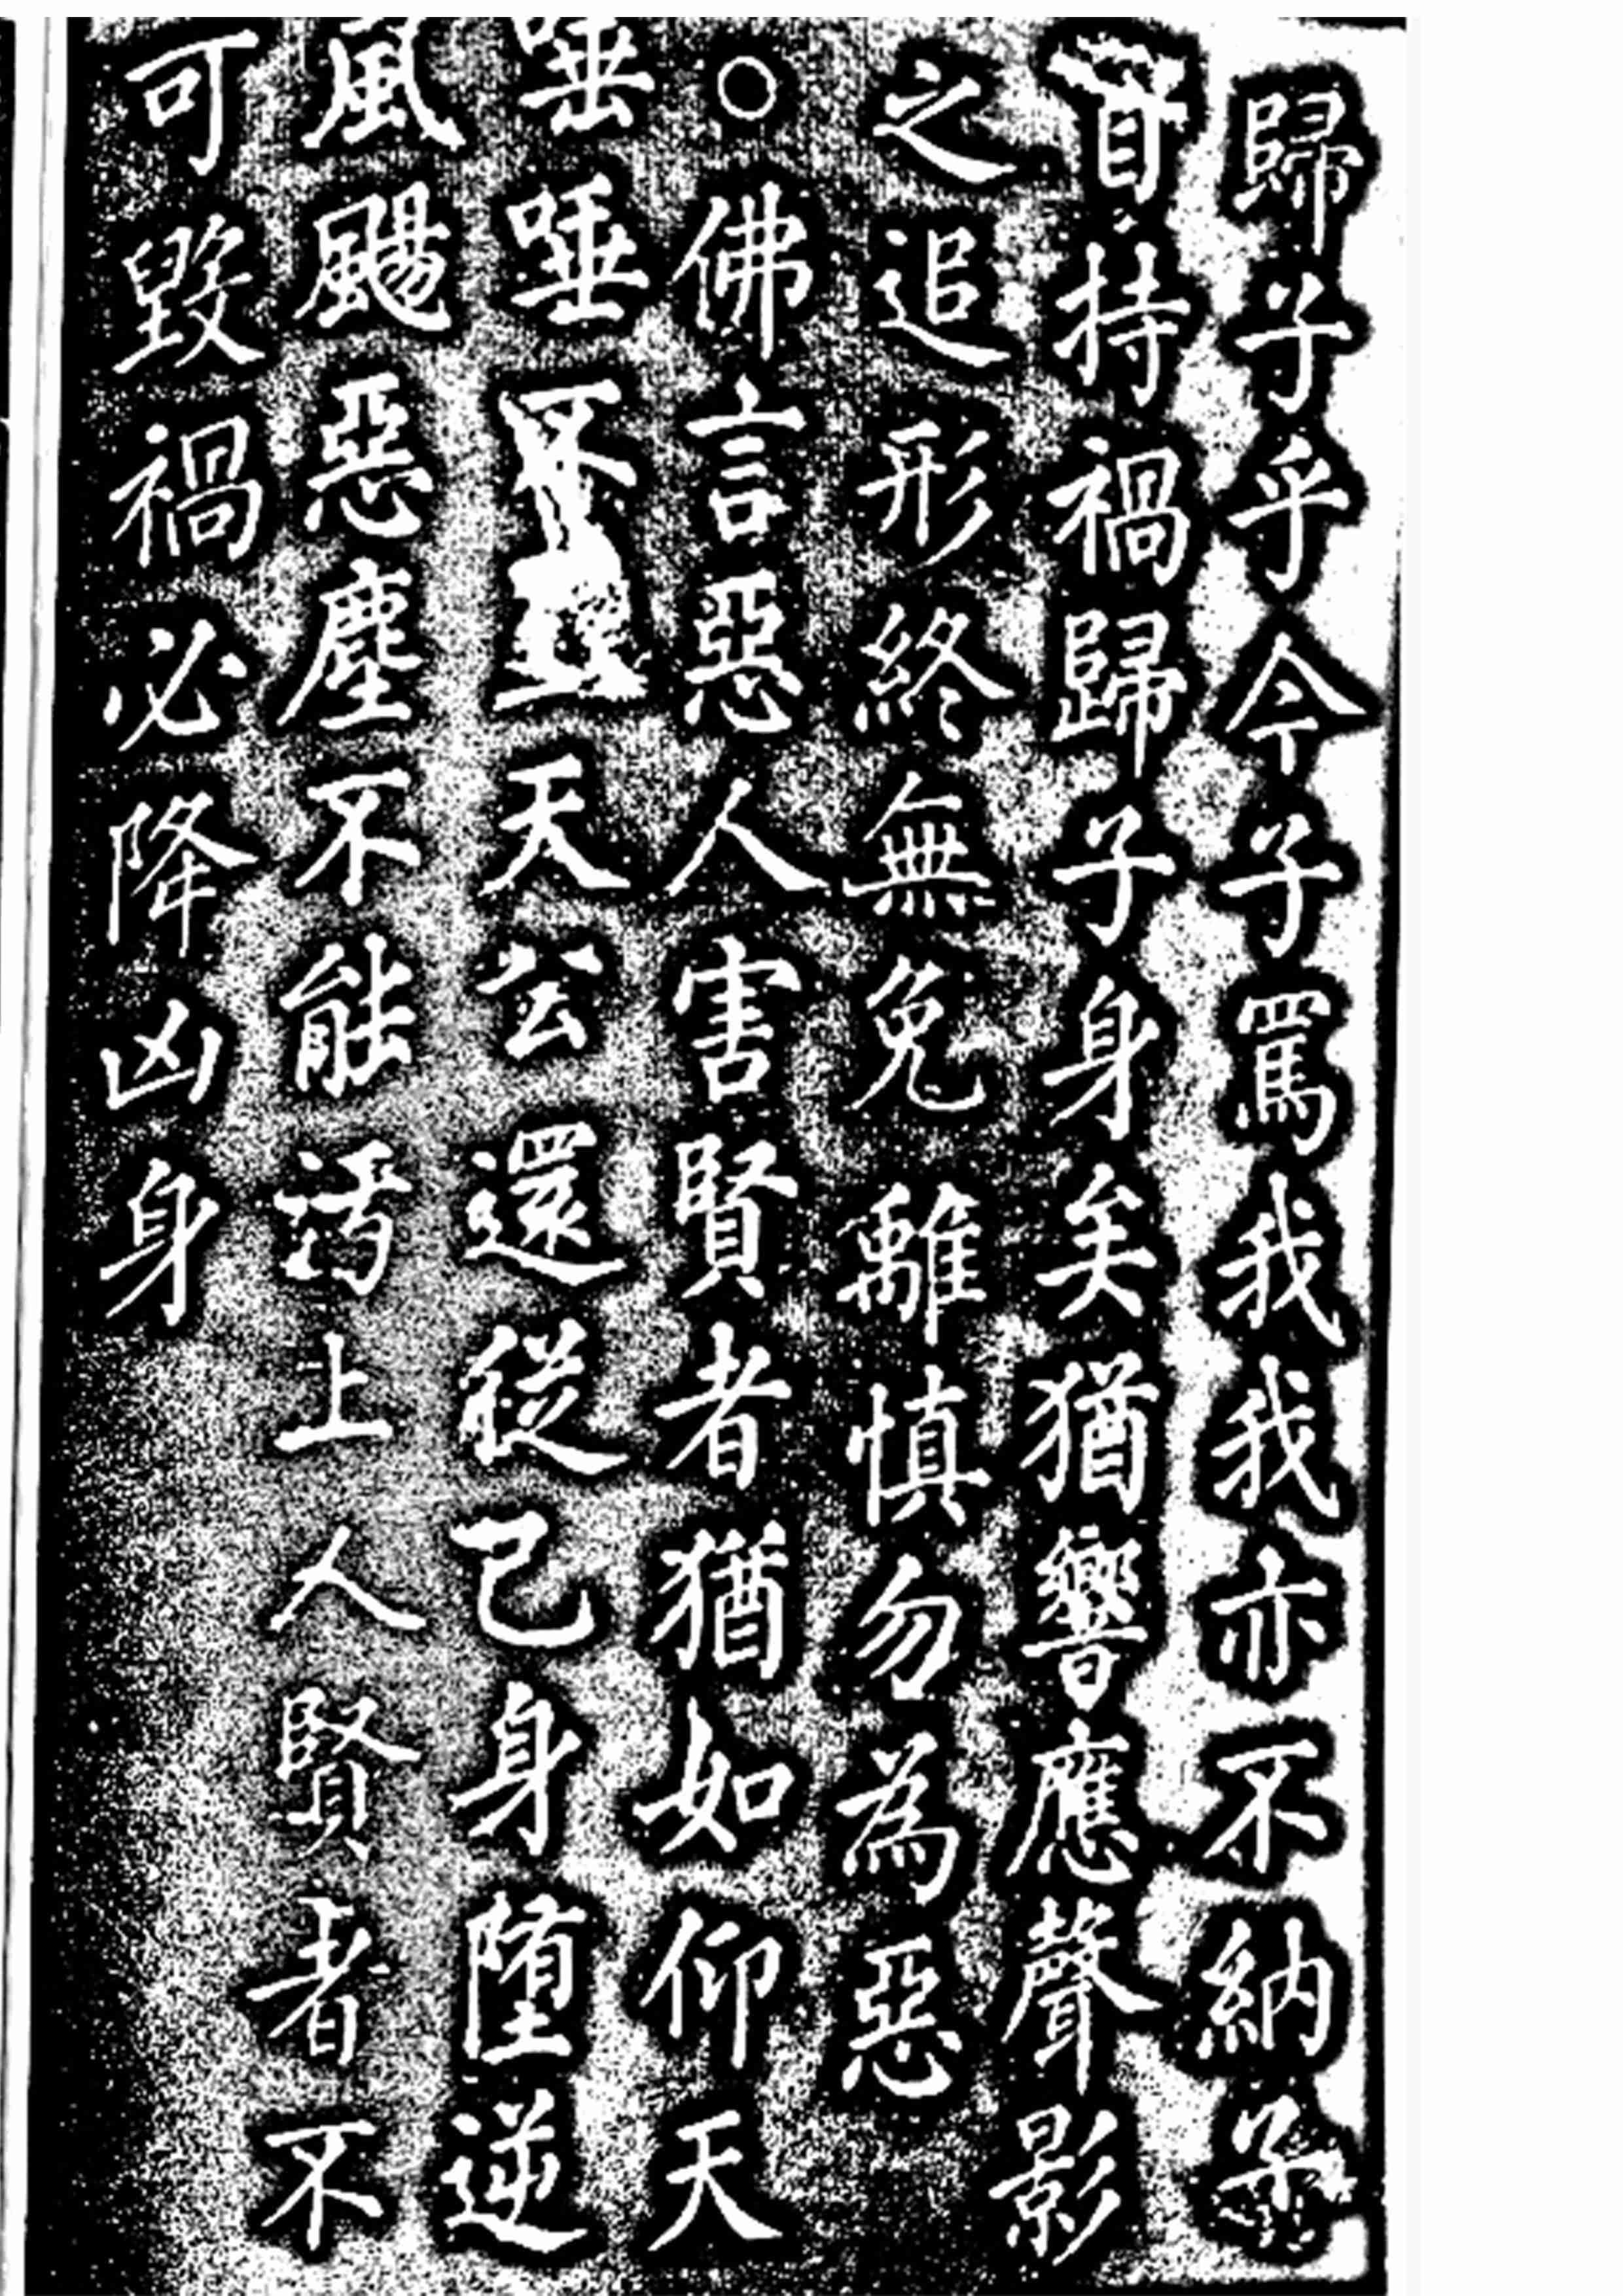 歸子乎今子罵我我亦不納子
自持禍歸子身矣猶響應聲影
之追形終無免離慎勿為惡
○佛言惡人害賢者猶如仰天
唾唾不天公還從己身墮逆
風颺惡塵不能污上人賢者不
可毀禍必降凶身